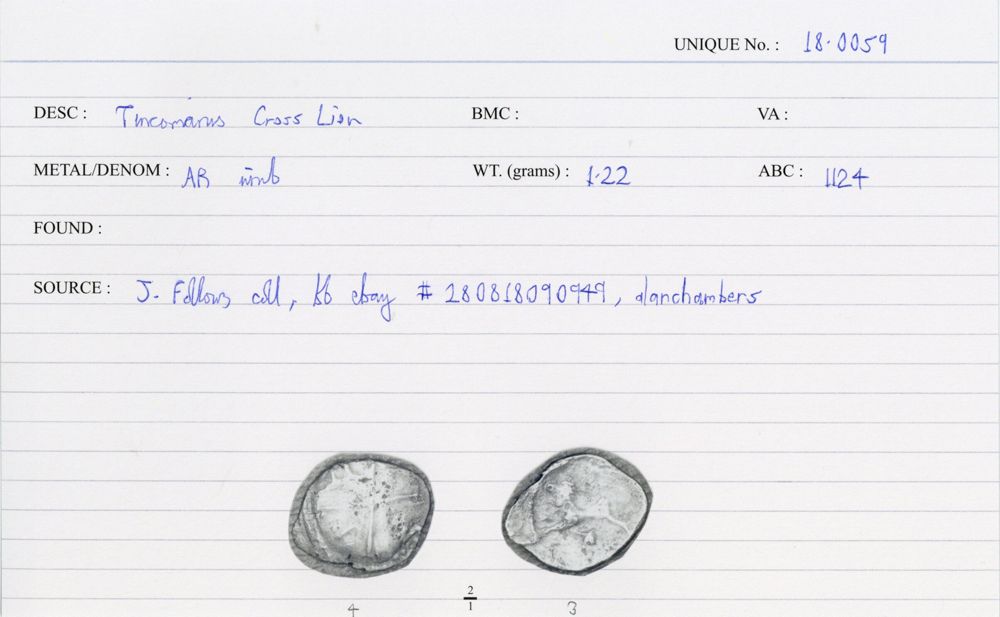 UNIQUE No. : 18.0059
DESC : Tincomarus Cross Lion BMC : VA :
METAL/DENOM : AR unit WT. (grams) : 1.22 ABC : 1124
FOUND :
SOURCE : J. Follows coll, ebay # 280818090949, alanchambers
2
1
4 3